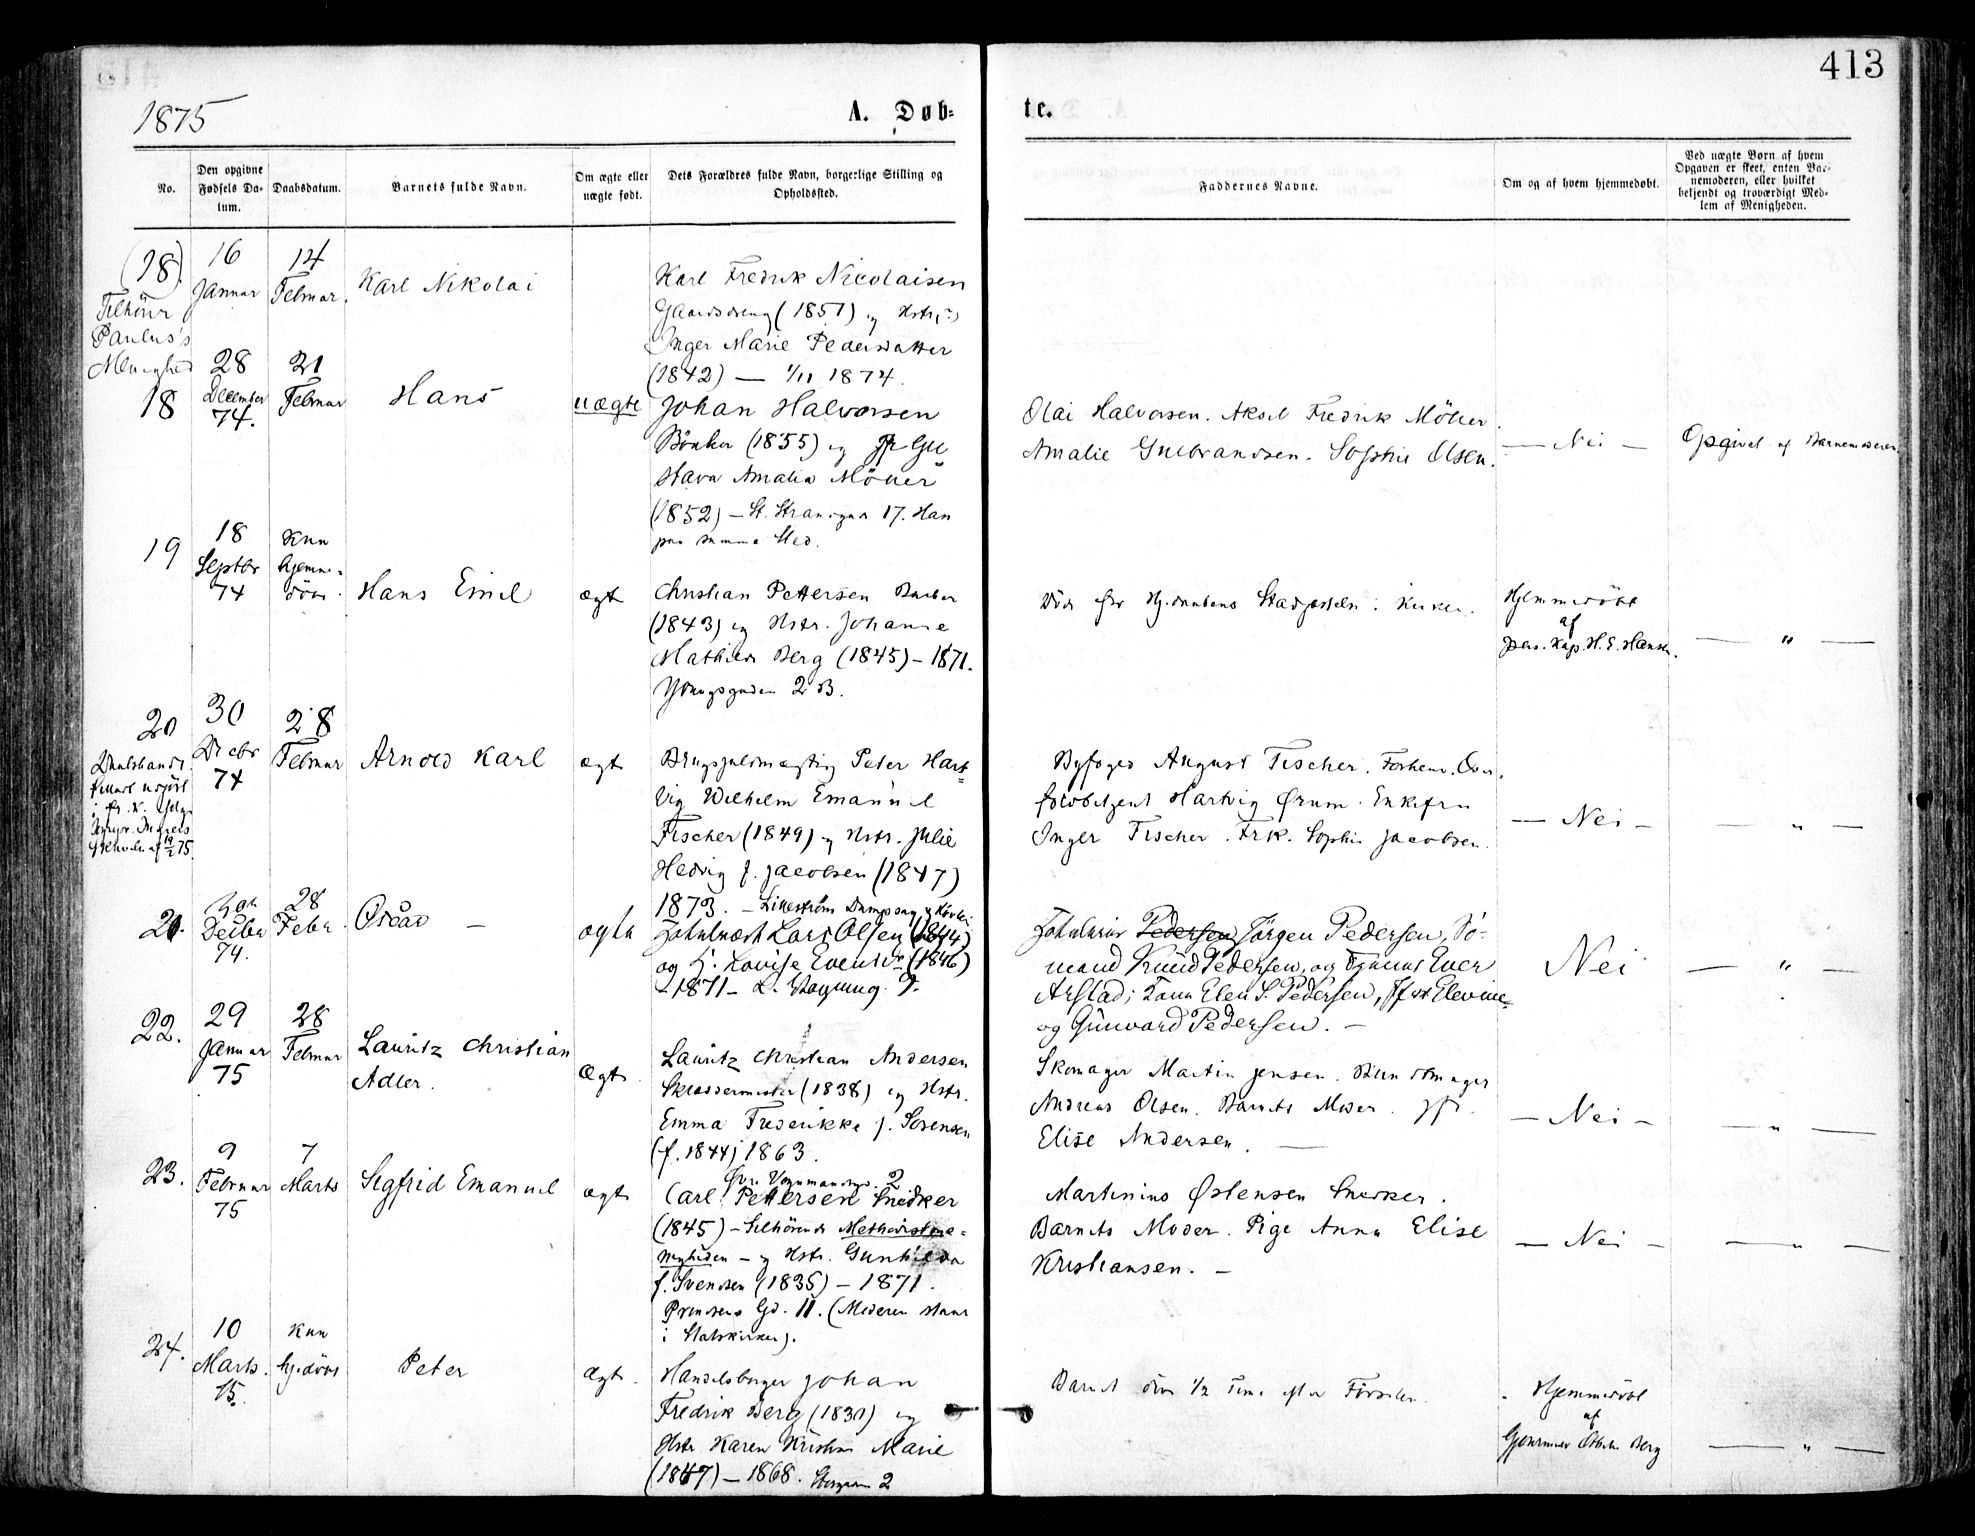 413
1875
A. Døb-
te.
No.
Den opgivne Fødsels Da-
tum.
Daabsdatum.
Barnets fulde Navn.
Om ægte eller
uægte født.
Dets Forældres fulde Navn, borgerlige Stilling og
Opholdssted.
Faddernes Navne.
Om og af hvem hjemmedøbt.
Ved uægte Børn af hvem
Opgaven er skeet, enten Bar-
nemoderen, eller hvilket
bekjendt og troværdigt Med-
lem af Menigheden.
(18)
Tilhører
Paulus's
Menighed
16
Januar
14
Februar.
Karl Nikolai
Karl Fredrik Nicolaisen
Gaardsdreng (1851) og Hstr
Inger Marie Pedersdatter
(1842) — 1/11 1874.
18
28
December
74.
21
Februar
Hans
uægte
Johan Halvorsen
Bødker (1855) og Gu
stava Amalia Möller
(1852) – St. Strandgad 17. Han
paa samme Sted.
Olai Halvorsen. Aksel Fredrik Möller.
Amalie Gulbrandsen. Sophie Olsen.
— Nei —
Opgivet af Barnemoderen
19
18
Septbr
74
Kun
hjemme-
döbt.
Hans Emil
ægt
Christian Pettersen Barber
(1843) og Hstr. Johanne
Mathilde Berg (1845) – 1871.
2 B.
Död før Hj.daabens Stadfæstelse i Kirken.
Hjemmedöbt
af
pens. Kap. H. E. Hansen.
— " —
20
30
Decbr
74
28
Februar
Arnold Karl
ægt
Brugsfuldmægtig Peter Hart-
vig Wilhelm Emanuel
Fischer (1849) og Hstr. Julie
Hedvig f. Jacobsen (1847)
1873. – Lilleström Dampsag
Byfoged August Fischer. Forhenv. Ober-
Hartvig Ørum. Enkefru
Inger Fischer. Frk. Sophie Jacobsen.
— Nei —
— " —
21.
Decbr
74.
28
Febr.
Oscar —
ægte
Lars Olsen (1844)
og H. Lovise Evensdr (1846)
– 1871 –
Pedersen, Jörgen Pedersen, Sö-
mand Knud Pedersen, og Iver
Arstad; Elen S. Pedersen, Elevine
og Gunvard Pedersen. —
Nei
— " —
22.
29
Januar
75
28
Februar
Lauritz Christian
Adler.
Ægt.
Lauritz Christian Andersen
Skræddermester (1838) og Hstr.
Emma Frederikke f. Sorensen
(f. 1844) 1863.
Øvre 2
Skomager Martin Jensen.
Andreas Olsen. Barnets Moder. Jfr.
Elise Andersen. —
— Nei —
— " —
23.
9
Februar
75
7
Marts
Sigfrid Emanuel
ægt
Carl Pettersen Snedker
(1845) – tilhörende Methodistme-
nigheden – og Hstr. Gunhilda
f. Svendsen (1835) – 1871.
Prindsens Gd. 11. (Moderen staar
i Statskirken).
Martinius Østensen Snedker.
Barnets Moder. Pige Anna Elise
Kristiansen. —
— Nei —
— " —
24.
10
Marts.
75.
Kun
hj.döbt
Peter
Ægt.
Handelsborger Johan
Fredrik Berg (1831) og
Hstr. Karen Kristine Marie
(1847) – 1868. Storgaden 2
Barnet döde 1/2 Time efter Födselen.
Hjemmedöbt
af
Berg
— " —